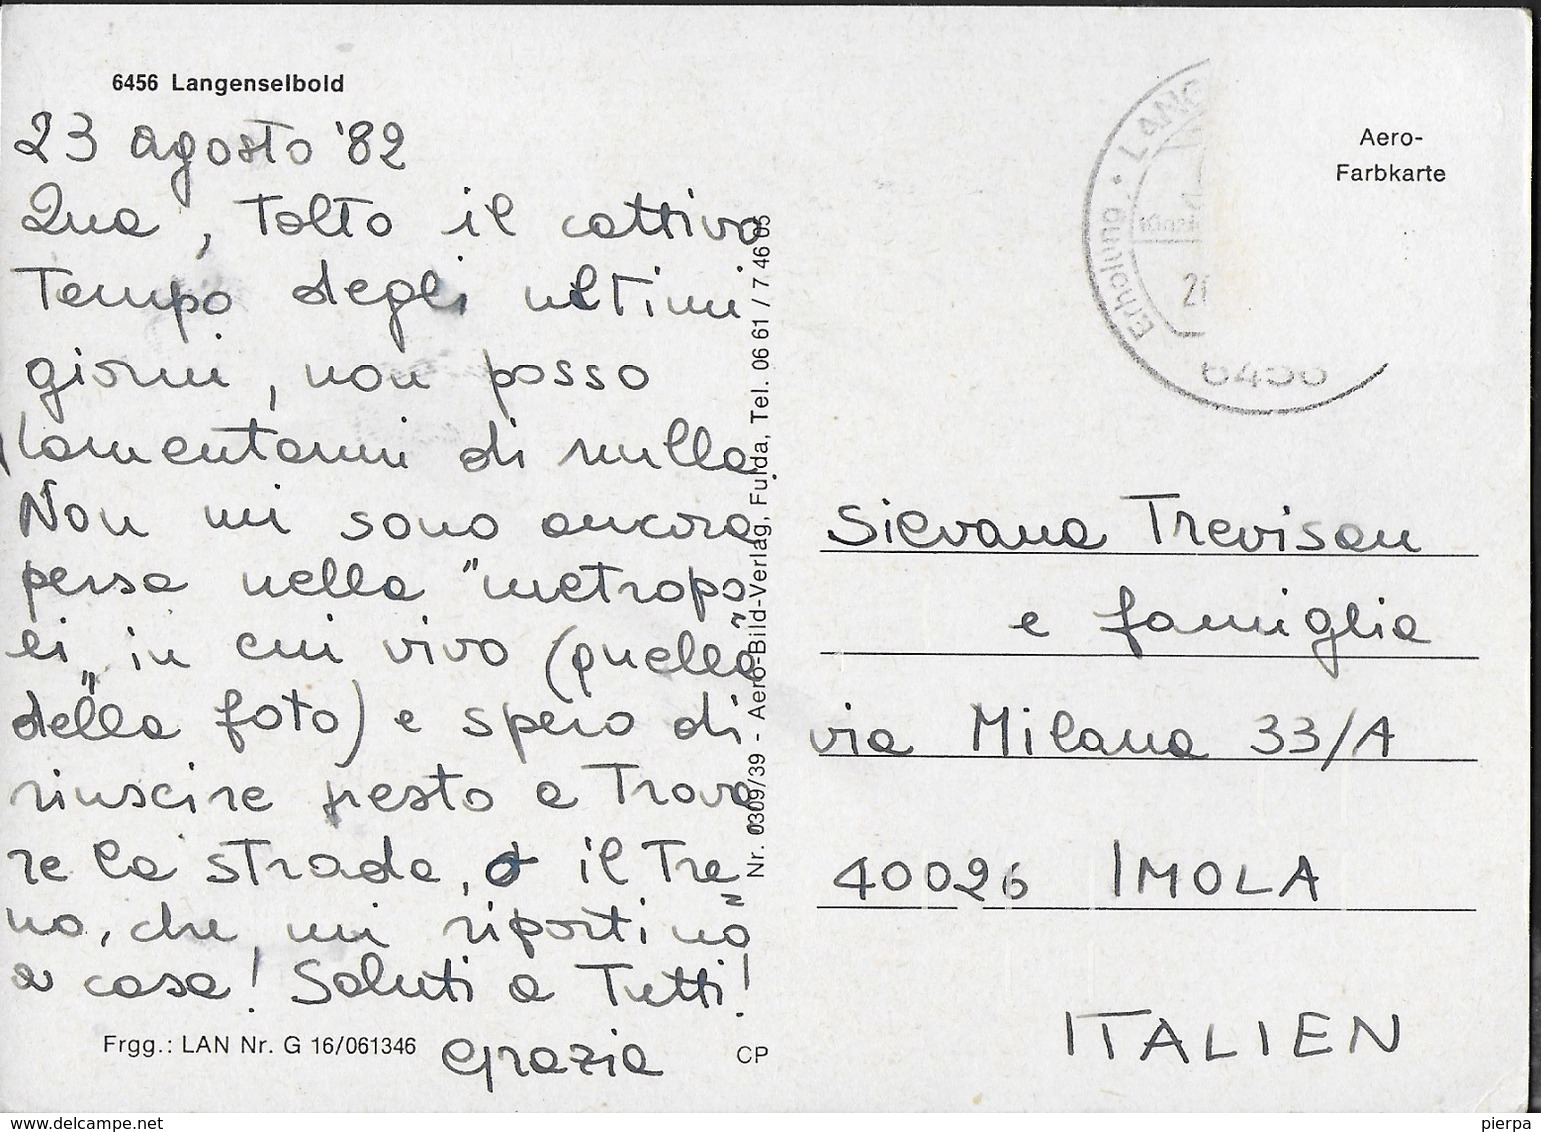 6456 Langenselbold
23 agosto '82
Qua, tolto il cattivo
tempo degli ultimi
giorni, non posso
lamentarmi di nulla.
Non mi sono ancora
persa nella "metropo=
li" in cui vivo (quella
della foto) e spero di
riuscire presto a trova=
re la strada, o il tre=
no, che mi riportino
a casa! Saluti a tutti!
Grazia
Frgg.: LAN Nr. G 16/061346
CP
Nr. 0309/39 - Aero-Bild-Verlag, Fulda, Tel. 06 61 / 7 46 05
Erholung • LANG
6456
Aero-
Farbkarte
Silvana Trevisan
e famiglia
via Milana 33/A
40026 IMOLA
ITALIEN
www.delcampe.net
pierpa